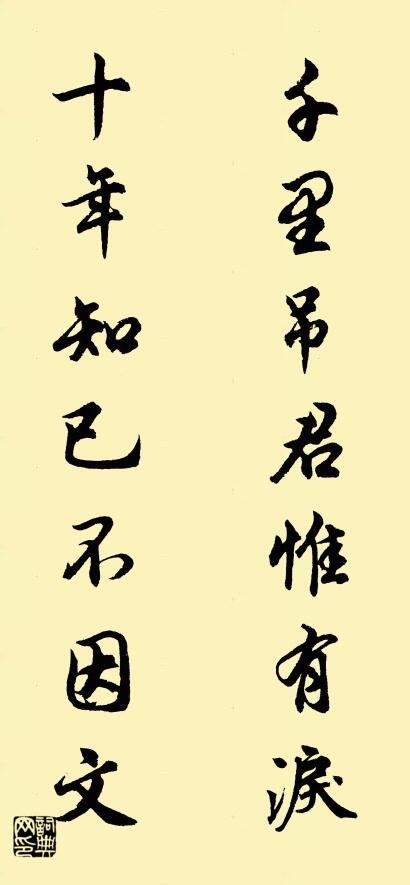 千里吊君惟有淚
十年知己不因文
詞典
网印